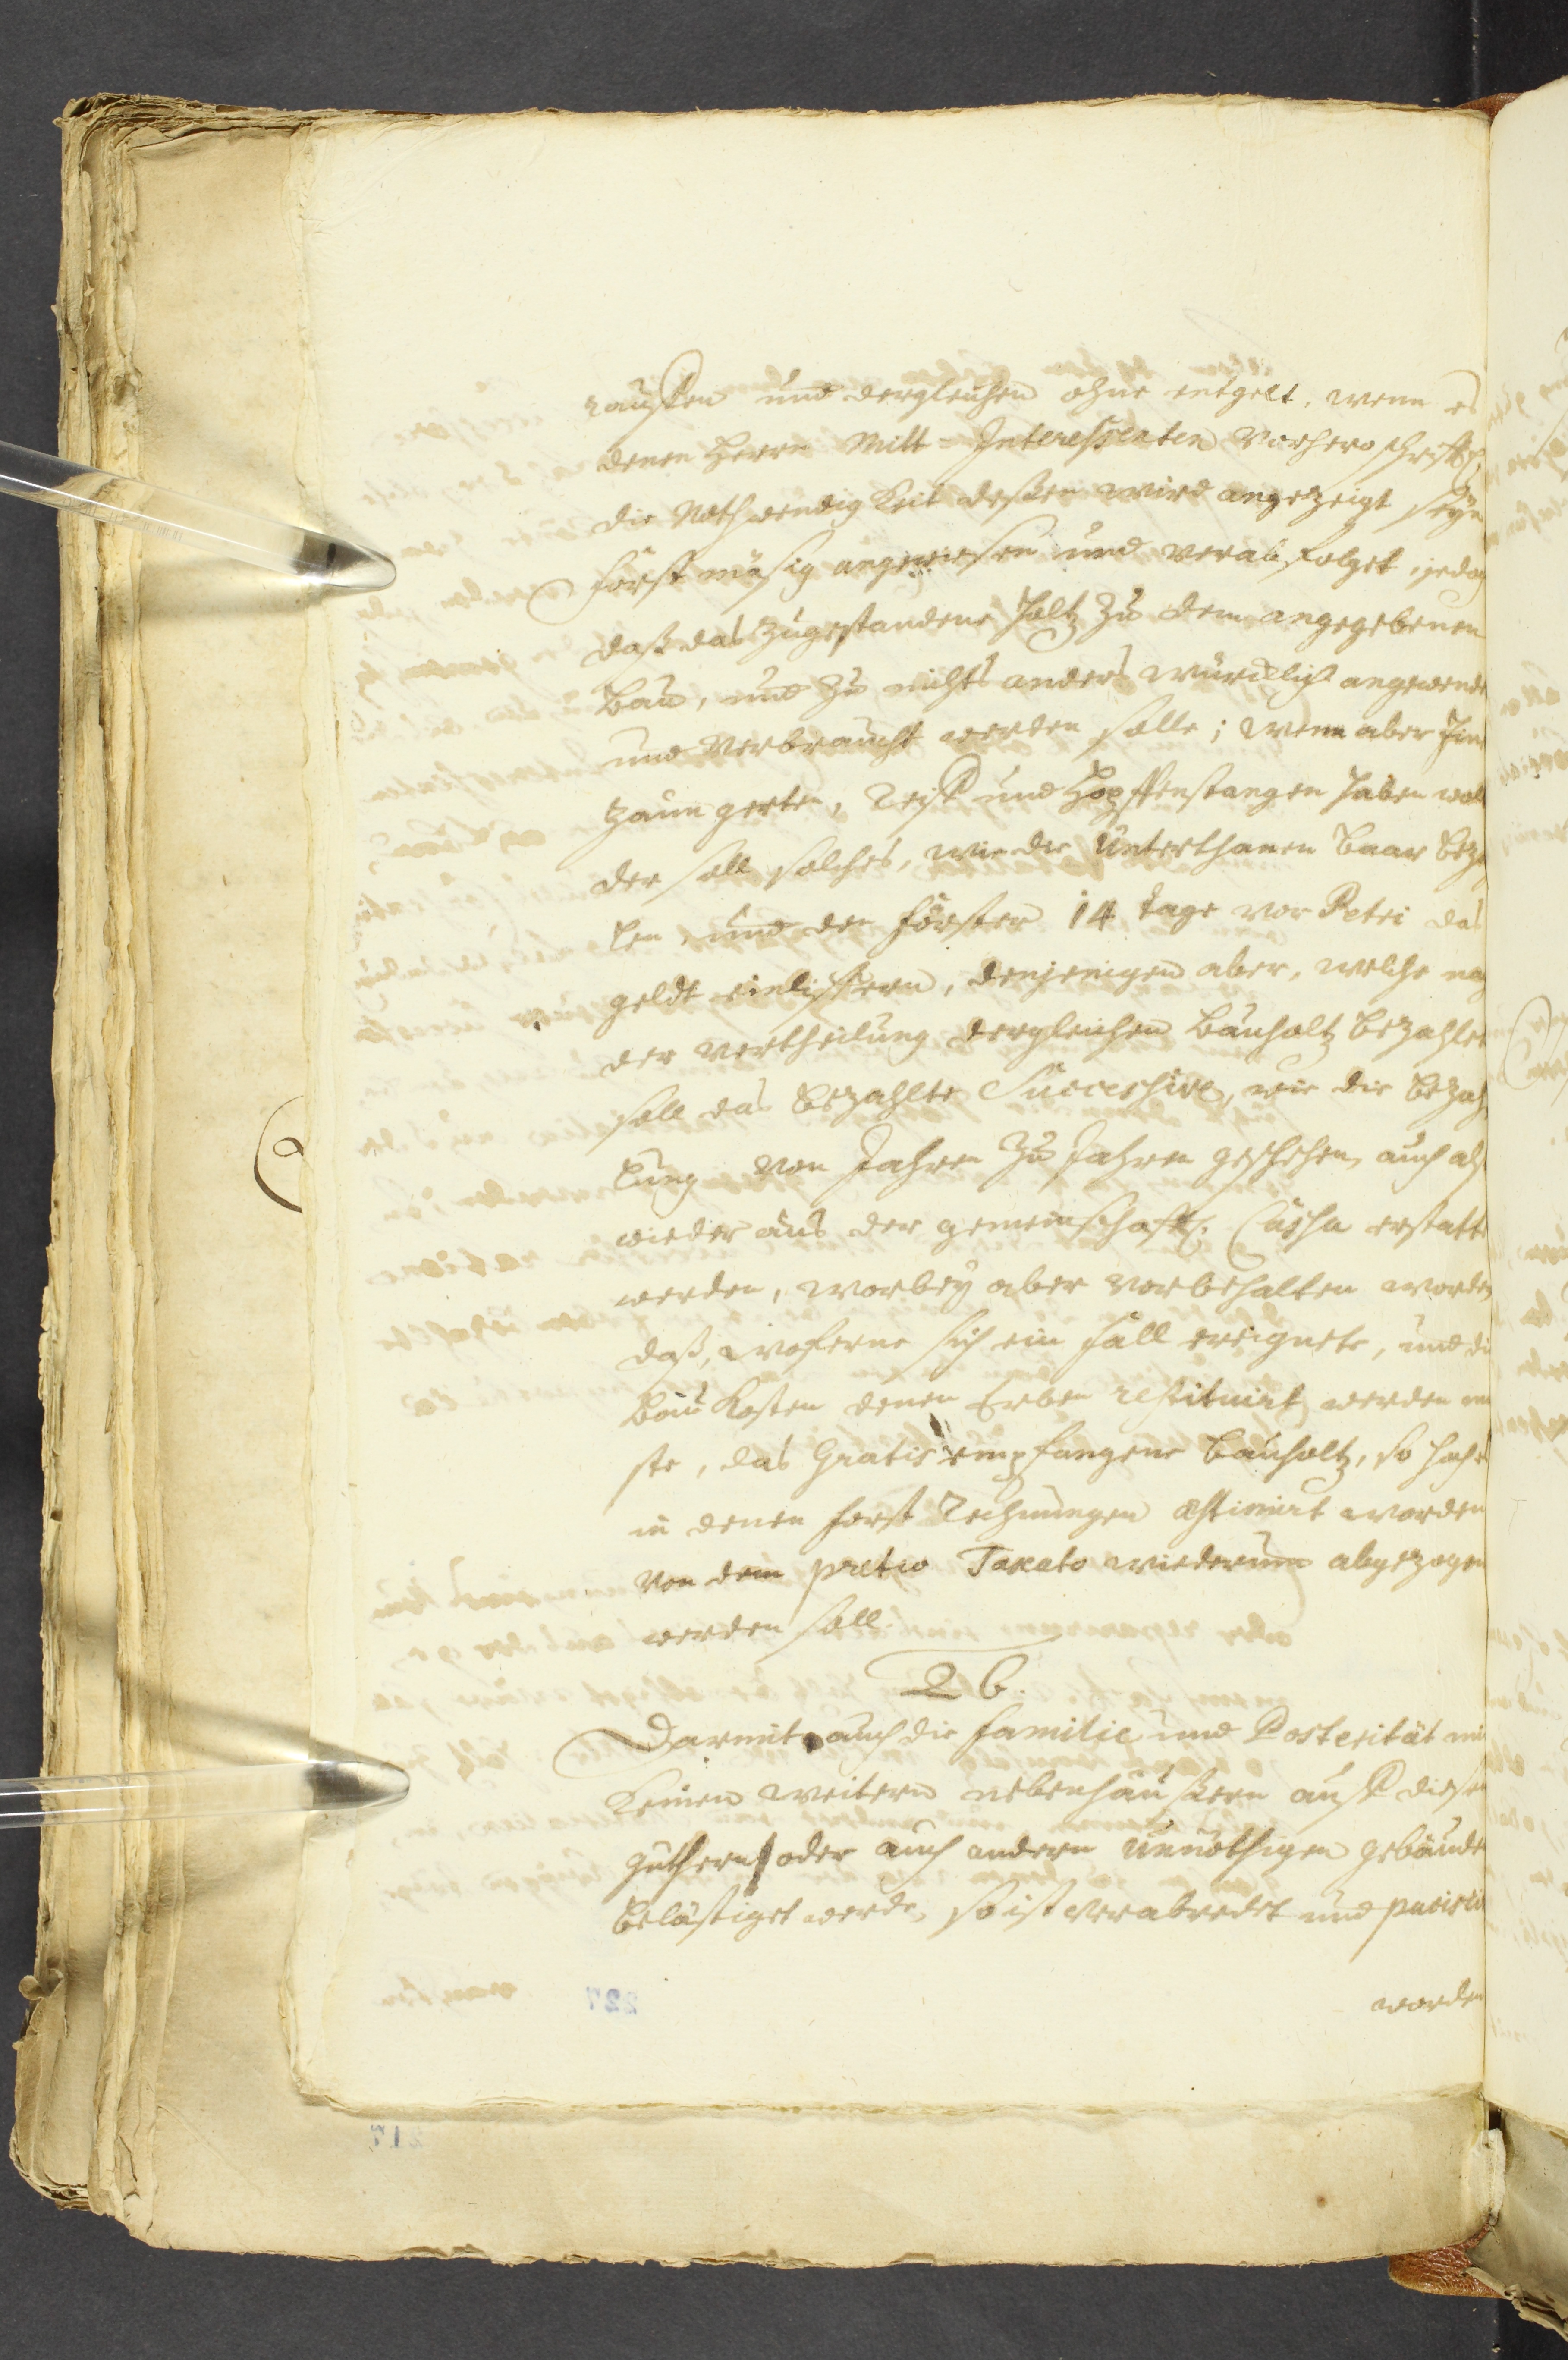 raußen und dergleichen ohne entgelt, wenn es
denen Herrn Mitt=Interessenten vorhero schrifftl.
die Nothwendigkeit deßen wird angezeigt seyn
forstmäsig angewiesen und verabfolget, jedoch
daß das zugestandene Holtz zu dem angegebenen
Bau, und zu nichts anders würcklich angewende
und verbraucht werden solle; wenn aber
Zaungerten, Reiß und Hopffenstangen haben wol
der soll solches, wie die Unterthanen baar beza
len, und den Förster 14 tage vor Petri das
geldt einlieffern, denjenigen aber, welche nach
der vertheilung dergleichen Bauholtz bezahlet
soll das bezahlte Successive, wie die bezah
lung von Jahren zu Jahren geschehen, auch also
wieder aus der gemeinschafftl. Cassa erstatte
werden, worbey aber vorbehalten worden
daß, woferne sich ein Fall ereignete, und die
Baukosten denen Erben restituirt werden mü
ste, das Gratis empfangene Bauholtz, so hoch es
in denen Forst Rechnungen æstimirt worden
von dem pretio Taxato wiederum abgezogen
werden soll.
26.
Darmit auch die Familie und Posterität mit
keinen weitern nebenhäußern auff diesen
güthern oder auch andern unnöthigen gebäude
belästiget werde, so ist verabredet und paciscir
worden
227
217